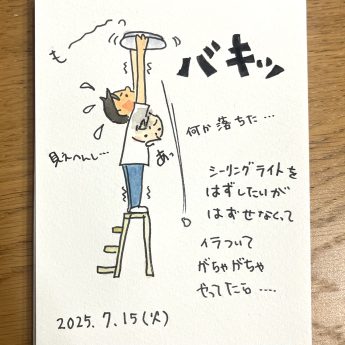 も〜
バキッ
何か落ちた…
見えへんし…
あっ
シーリングライトを
はずしたいが
はずせなくって
イラついて
がちゃがちゃ
やってたら….
2025.7.15(火)